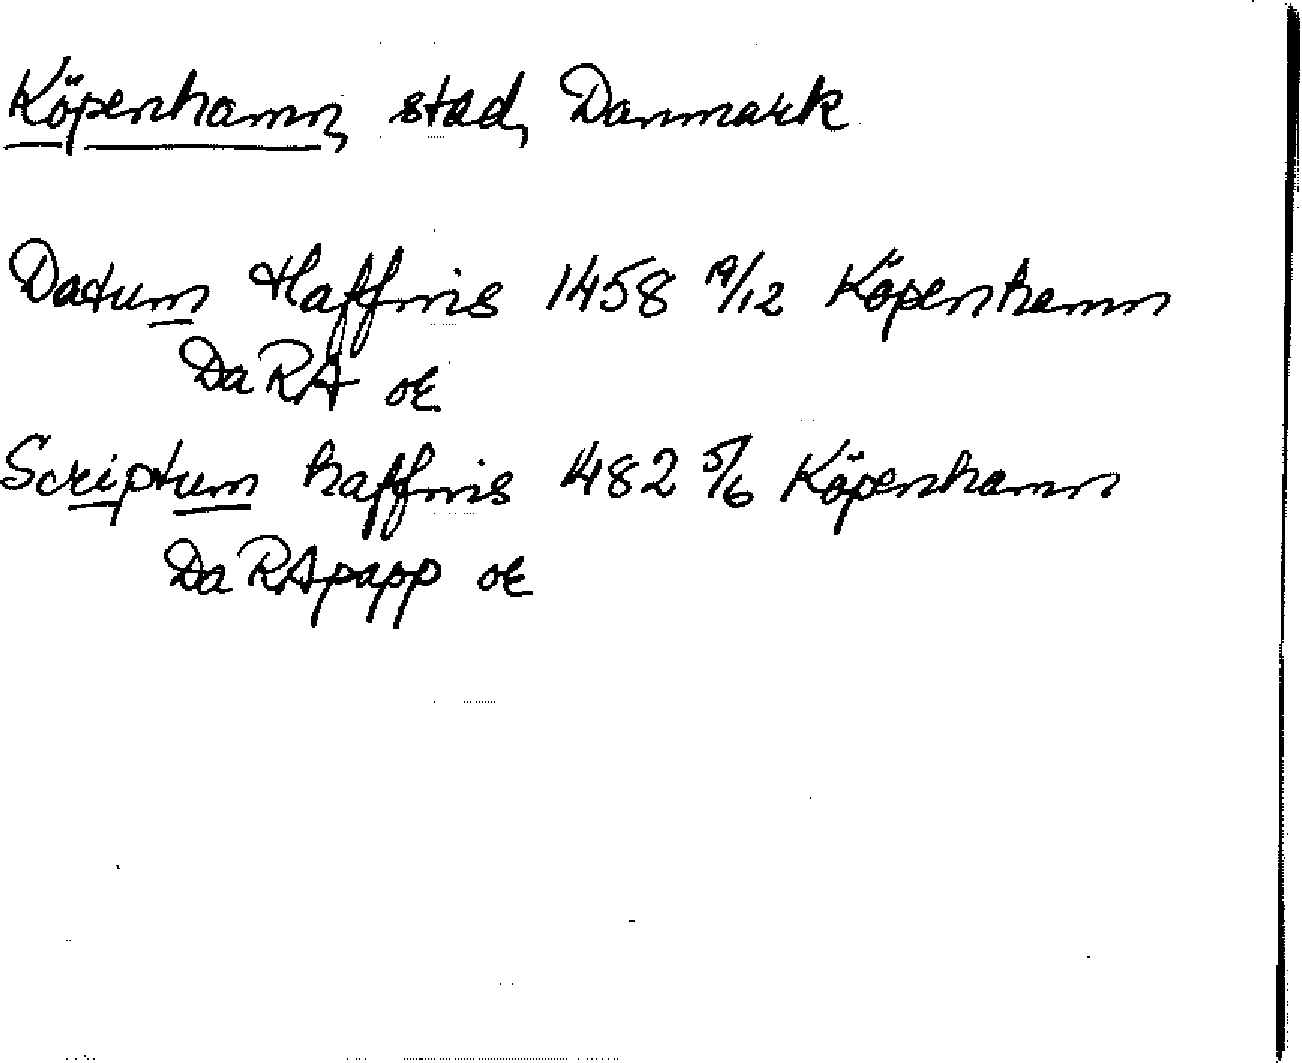 Köpenhamn, stad, Danmark
Datum Haffnis 1458 19/12 Köpenhamn
DaRA or
Scriptum haffnis 1482 5/6 Köpenhamn
DaRApapp or